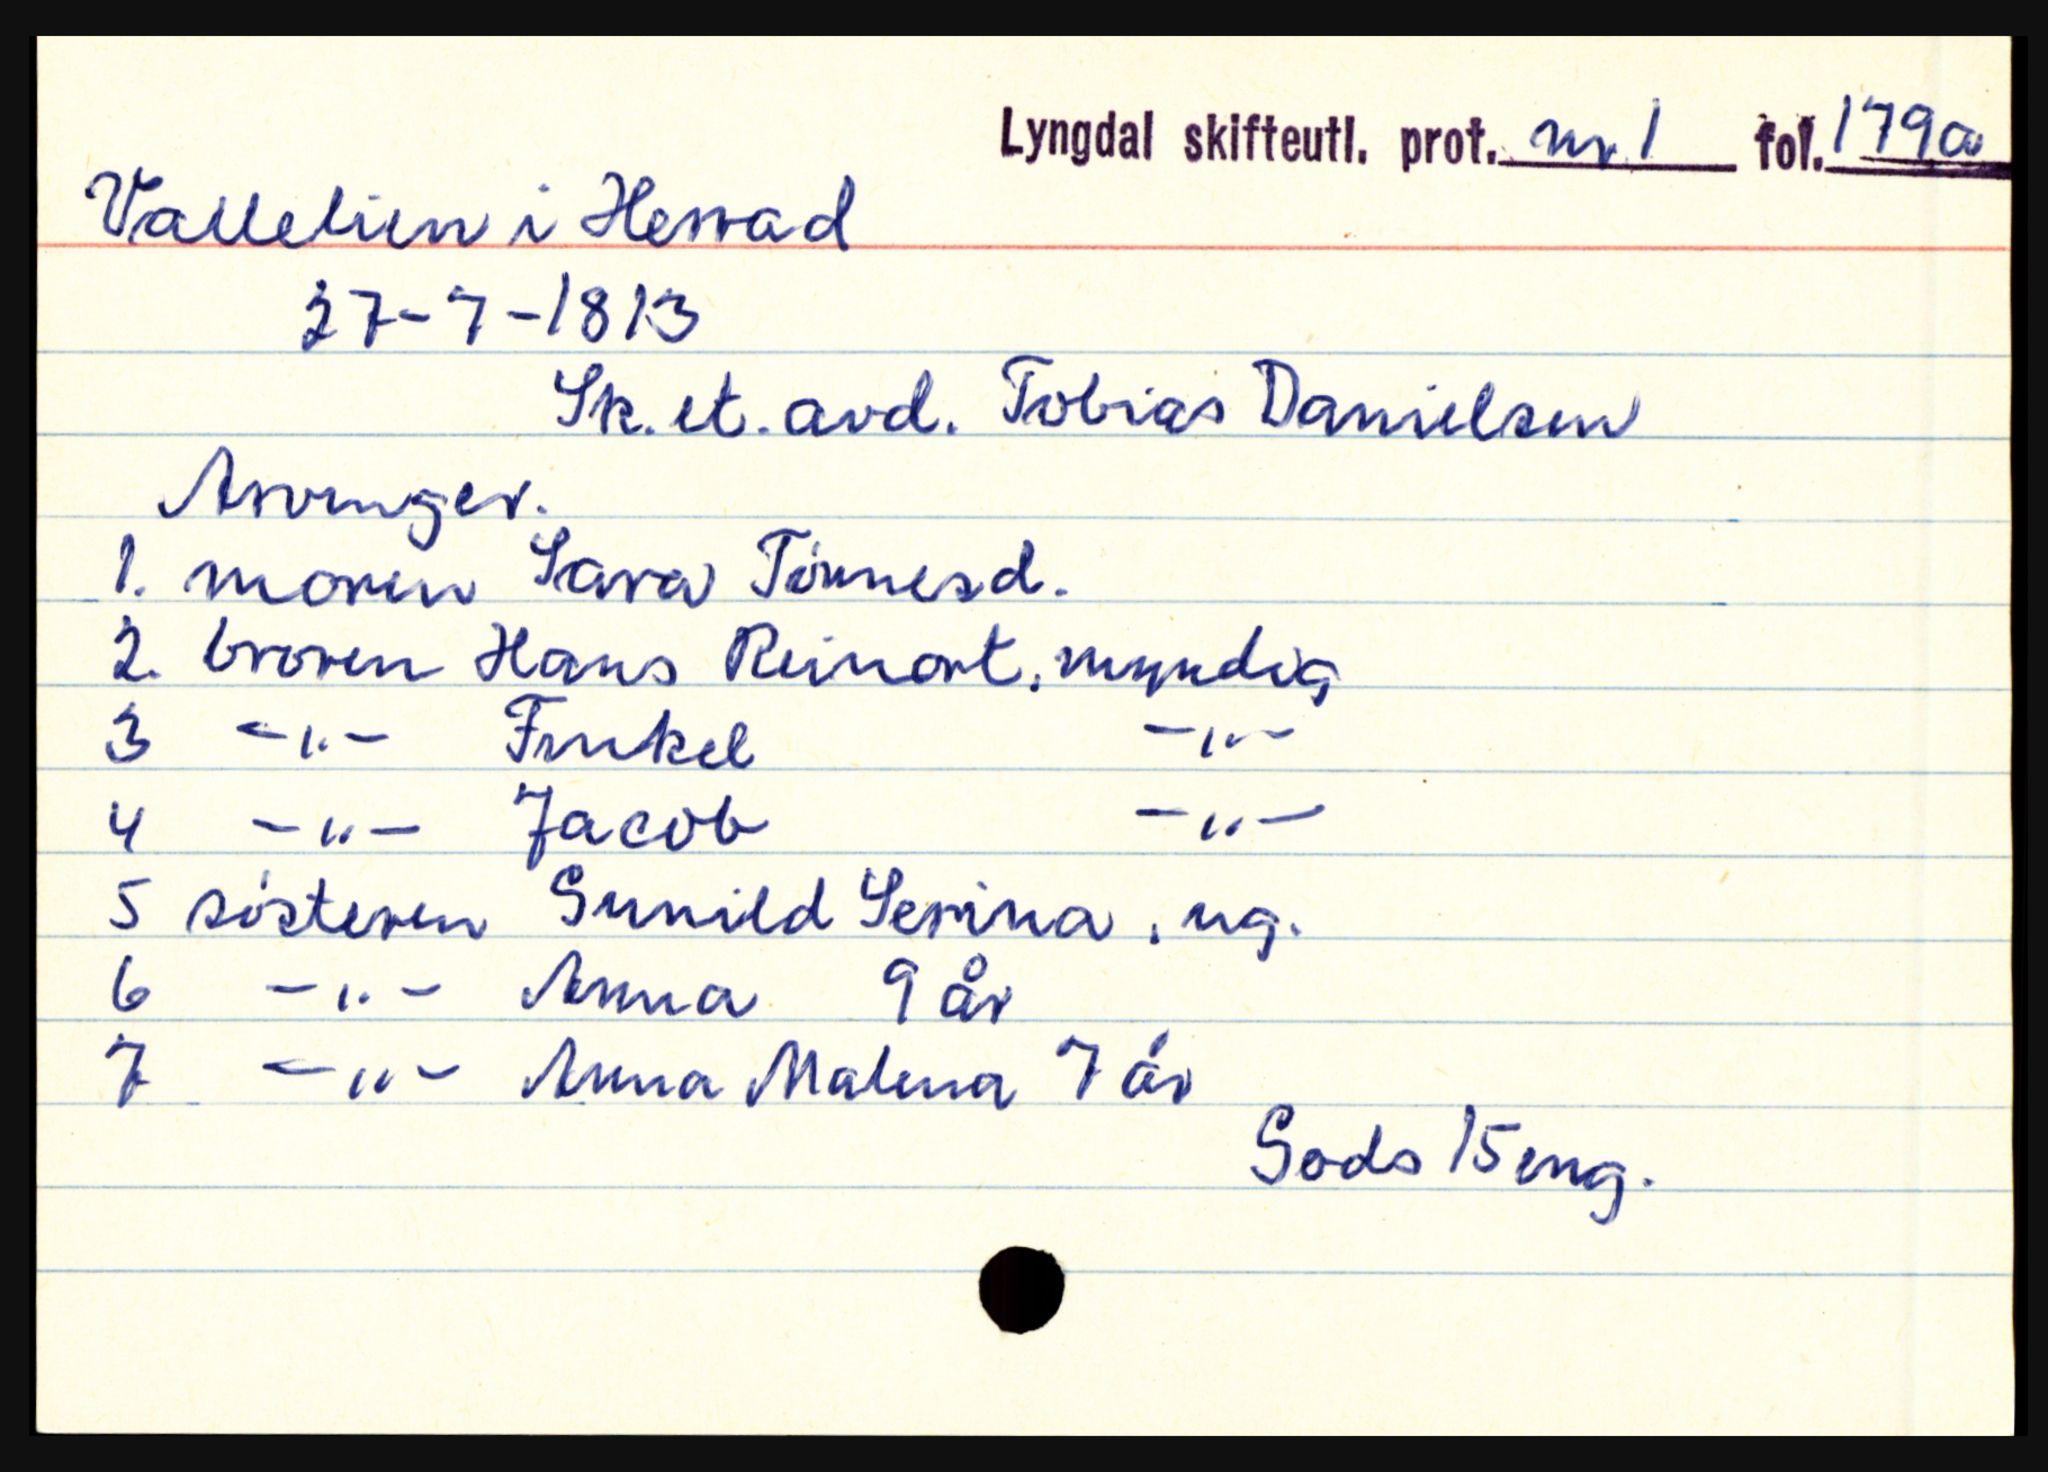 Lyngdal skifteutl. prot. nr. 1 fol. 179a
Vallelien i Herrad
27-7-1813
Sk. et. avd. Tobias Danielsen
Arvinger.
1. moren Sara Tönnesd.
2. broren Hans Reinort, myndig
3 -"- Frukel -"-
4 -"- Jacob -"-
5 sösteren Gunild Serina, ug.
6 -"- Anna 9 år
7 -"- Anna Malena 7 år
Gods 15 eng.